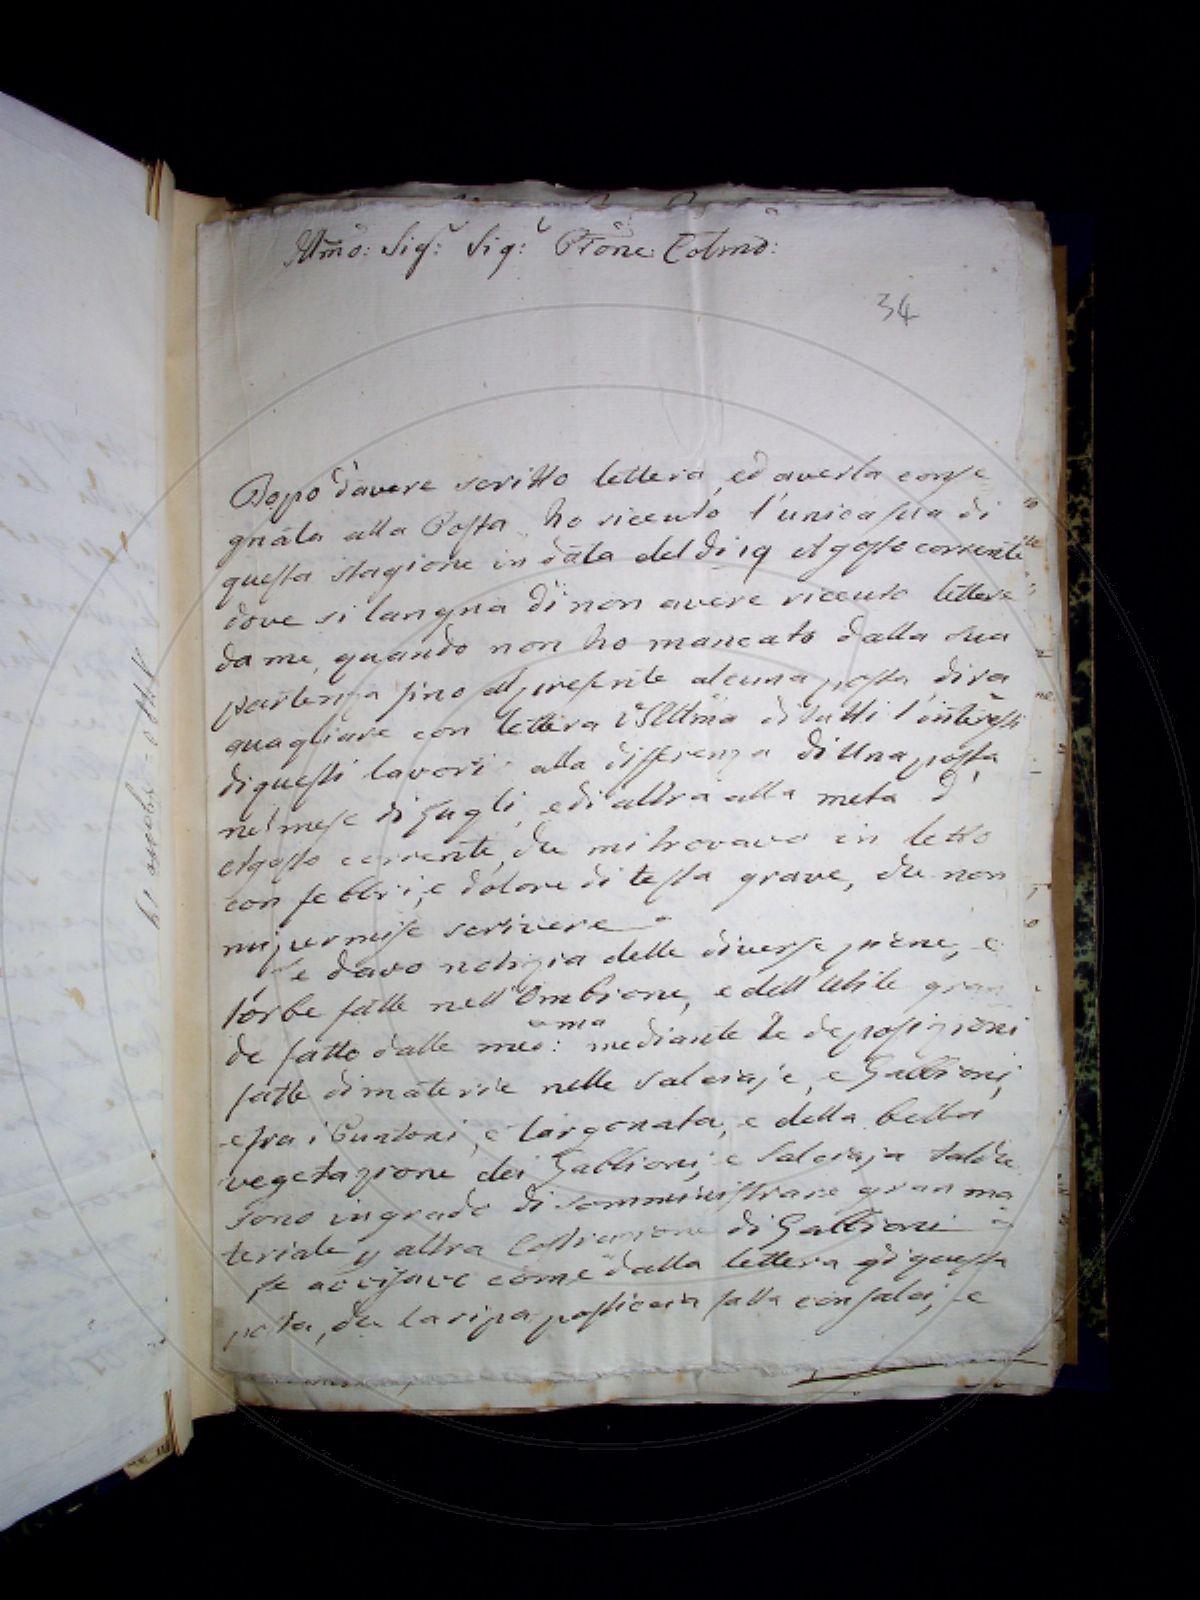 Illmo: Sigr: Sigr: Prone Colmo:
34
Dopo d'avere scritto lettera, ed averla conse
gnàta alla Posta ho riceuto l'unica sua di
questa stagione in dàta del dì 19 Agosto corrente
dove si langna di non avere riceuto lettere
da me, quando non ho mancato dalla sua
partenza sino al presente alcuna posta di ra
guagliare con lettera VSIllma di tutti l'interessi
di questi lavori alla differenza di una posta
nel mese di Lugli, e di altra alla metà d'
Agosto corrente, che mi trovavo in letto
con febbri, e dolore di testa grave, che non
mi permise scrivere
Le davo notizia delle diverse piene, e
torbe fatte nell'Ombrone, e dell'utile gran
de fatto dalle medema: mediante le deposizioni
fatte di materie nelle salciaje, e Gabbioni,
e fra i Puntoni, e l'argonata, e della bella
vegetazione dei Gabbioni, e Salciaja talche
sono in grado di somministrare gran ma
teriale p altra Costruzione di Gabbioni
Le avvisavo come dalla lettera di questa
posta, che la ripa posticcia fatta con salci, e